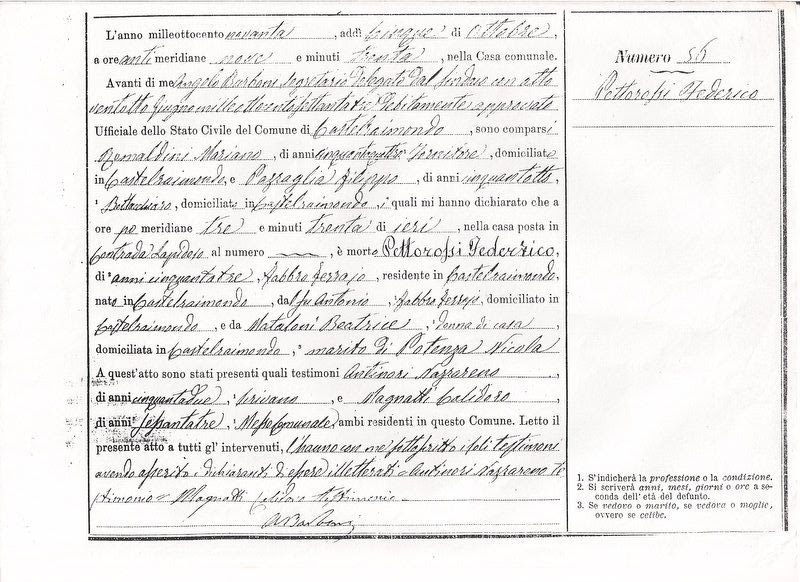 L'anno milleottocento novanta, addì cinque di Ottobre,
a ore anti meridiane nove e minuti trenta, nella Casa comunale.
Avanti di me Angelo Barboni Segretario Delegato dal Sindaco con atto
ventotto Giugno mille ottocento settantatre Debitamente approvato
Ufficiale dello Stato Civile del Comune di Castelraimondo, sono comparsi
Romaldini Mariano, di anni cinquantaquattro, domiciliato
in Castelraimondo, e Pazzaglia Filippo, di anni cinquantotto
, domiciliato in Castelraimondo, i quali mi hanno dichiarato che a
ore po meridiane tre e minuti trenta di ieri, nella casa posta in
Contrada Lapidoso al numero , è morto Pettorossi Federico,
di anni cinquantatre, fabbro ferrajo, residente in Castelraimondo,
nato in Castelraimondo, dal fu Antonio, fabbro ferrajo, domiciliato in
Castelraimondo, e da Mataloni Beatrice, donna di casa,
domiciliata in Castelraimondo, marito di Potenza Nicola
A quest'atto sono stati presenti quali testimoni Antinori Nazzareno
di anni cinquantadue, scrivano, e Magnatti Calidoro
di anni sessantatre, Messo Comunale, ambi residenti in questo Comune. Letto il
presente atto a tutti gl' intervenuti, l'hanno con me sottoscritto i soli testimoni
avendo asserito i dichiaranti d'essere illetterati = Antinori Nazzareno te
stimonio = Magnatti Calidoro testimonio =
A Barboni
Numero 56
Pettorossi Federico
1. S'indicherà la professione o la condizione.
2. Si scriverà anni, mesi, giorni o ore a se-
conda dell' età del defunto.
3. Se vedovo o marito, se vedova o moglie,
ovvero se celibe.